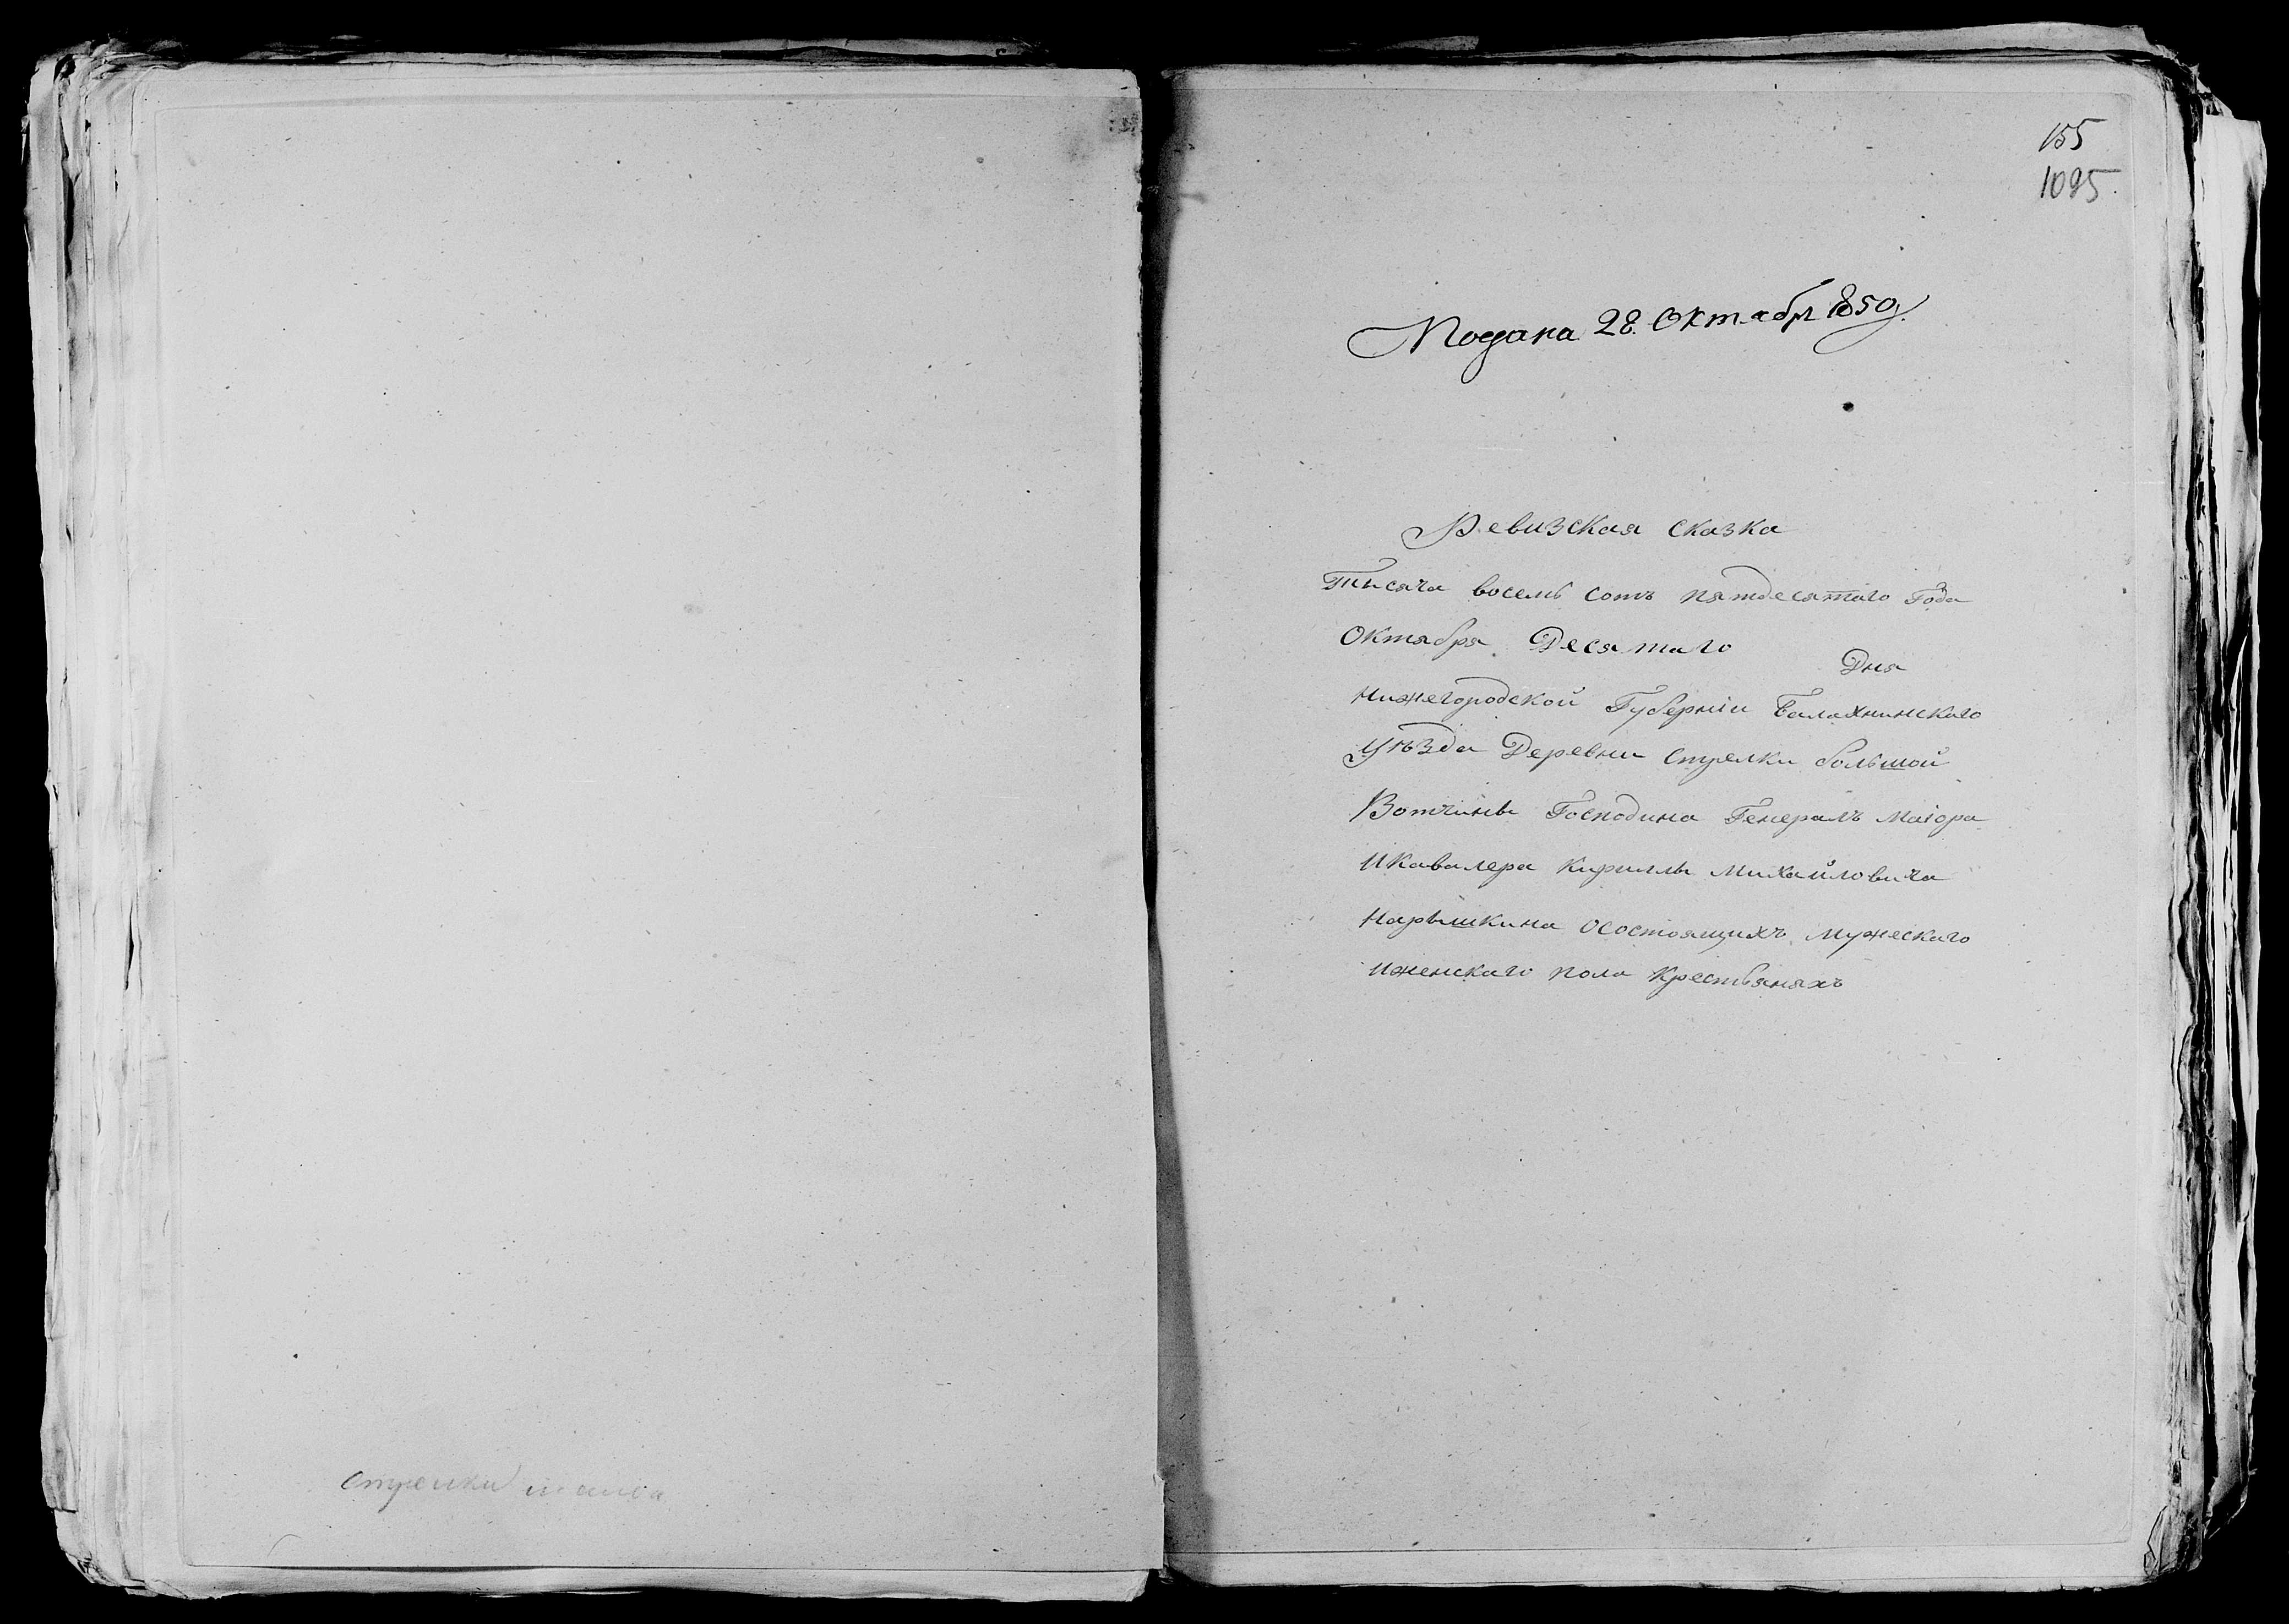 155
1095.
Подана 28. Октября 1850 г.
Ревизская сказка
Тысяча восемь сотъ пятдесятаго года
Октября Десятаго
Дня
Нижегородской Губернiи Балахнинскаго
Уѣзда Деревни Стрелки большой
Вотчины Господина Генералъ Маiора
Икавалера Кириллы Михайловича
Нарышкина Осостоящихъ мужескаго
Иженскаго пола Крестьянахъ
Стрелки